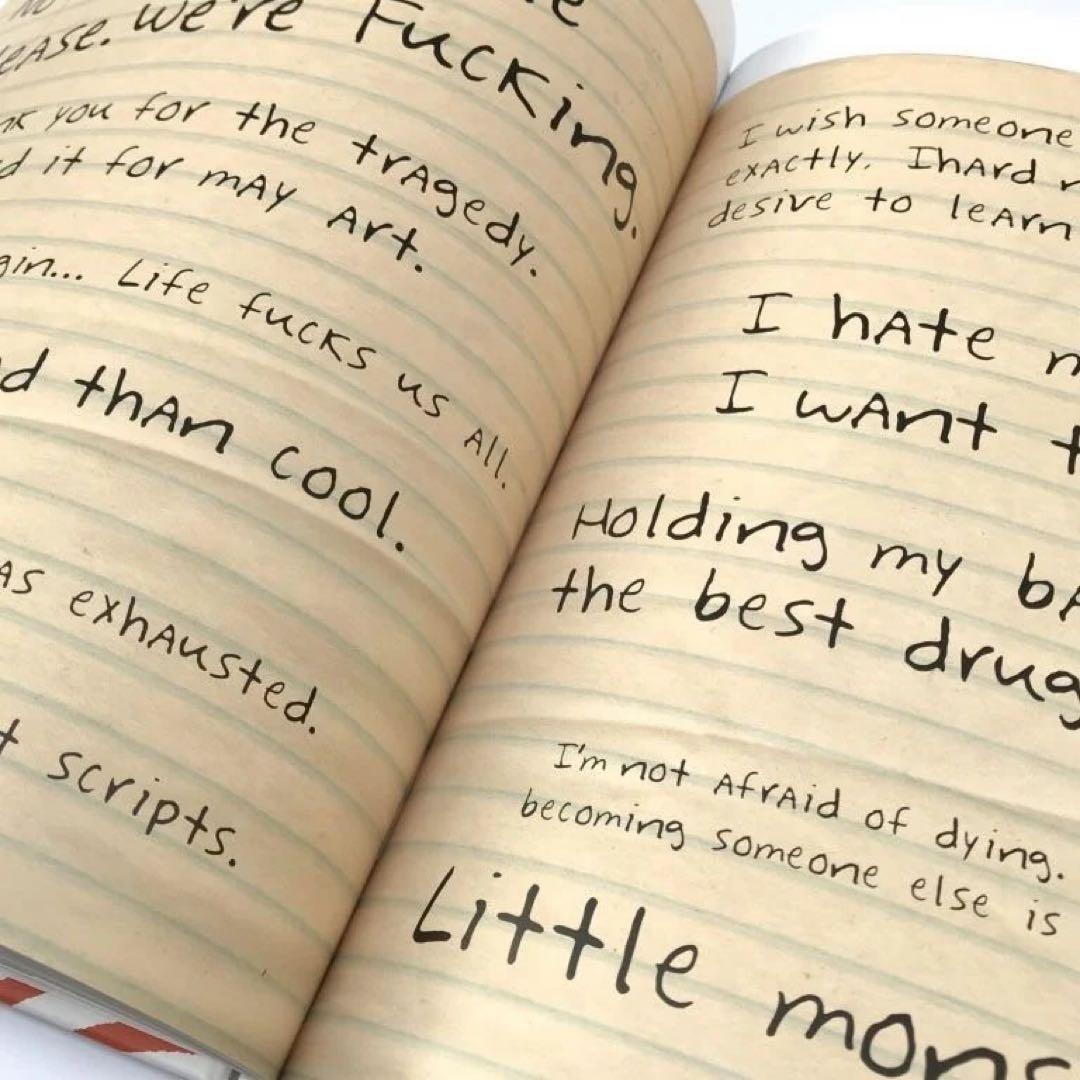 we're Fucking.
you for the tragedy.
it for mAy Art.
Life fucks us All.
thAn cool.
exhausted.
scripts.
I wish someone
exActly. IhArd
desive to leArn
I hAte
I wAnt
Holding my
the best
I'm not AfrAid of dying.
becoming someone else is
Little